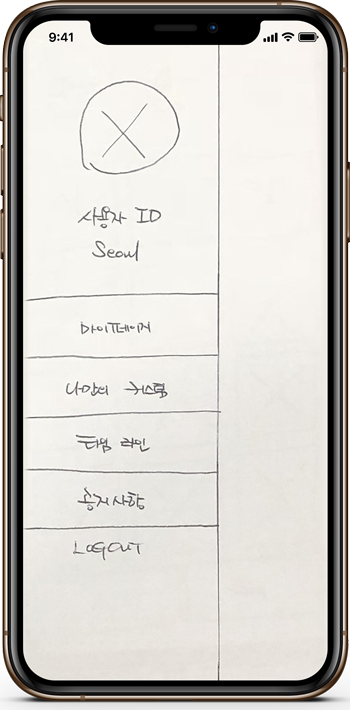 9:41
사용자 ID
Seoul
마이페이지
나만의 커스텀
타임 라인
공지사항
LOGOUT